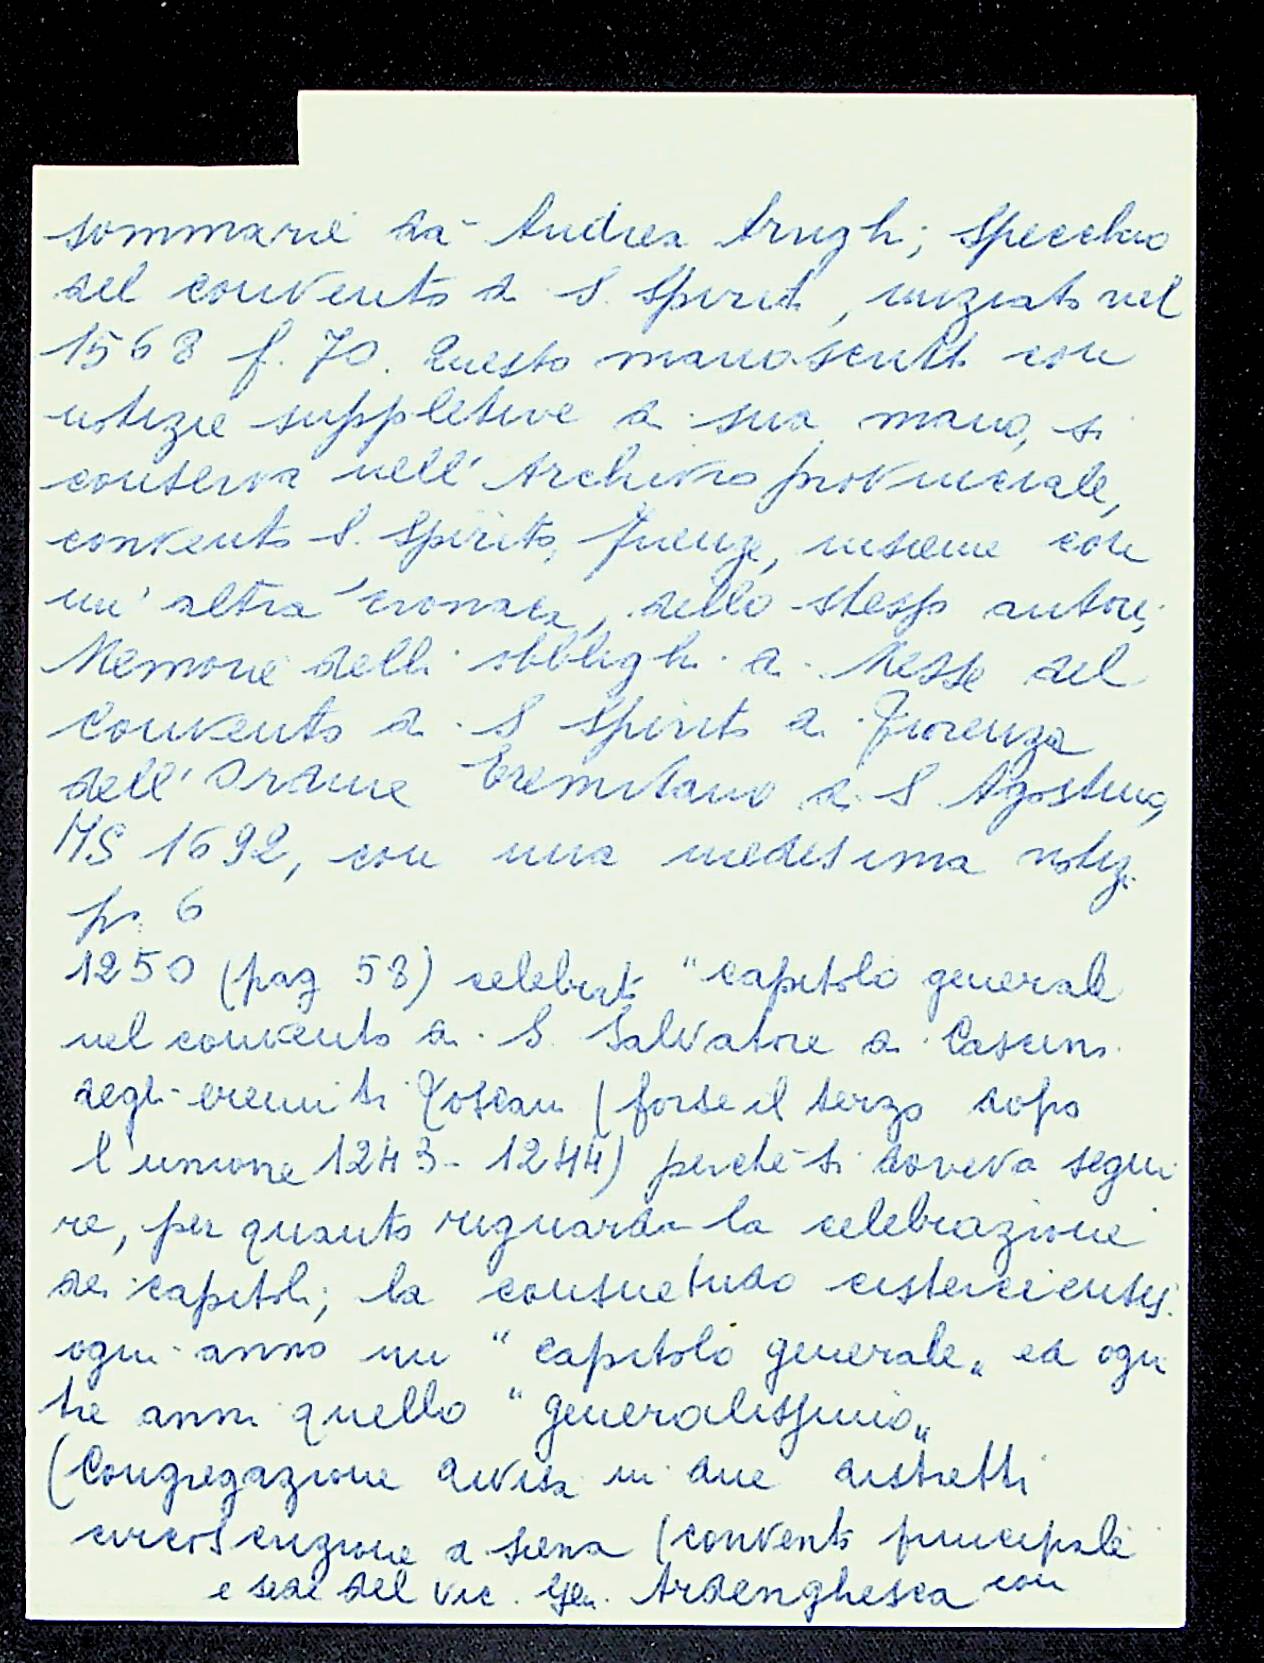 sommarie da Andrea Arrigh; Specchio
del convento di S. Spirito, iniziato nel
1568 f. 70. Questo manoscritto con
notizie suppletive di sua mano, si
conserva nell' Archivio provinciale,
convento S. Spirito, Firenze, insieme con
un' altra cronaca, dello stesso autore;
Memorie delli obblighi di Messe del
Convento di S Spirito di Fiorenza
dell' Ordine Eremitano di S. Agostino,
MS 1692, con una medesima notiz.
p. 6
1250 (pag 58) celebrato "capitolo generale
nel convento di S. Salvatore di Cascina
degli eremiti Toscani (forse il terzo dopo
l'unione 1243-1244) perché si doveva segui
re, per quanto riguarda la celebrazione
dei capitoli; la consuetudo cisterciensis:
ogni anno un "capitolo generale" ed ogni
tre anni quello "generalissimo"
(Congregazione divisa in due distretti
circoscrizione di Siena (convento principale
e sede del vic. Gen. Ardenghesca con